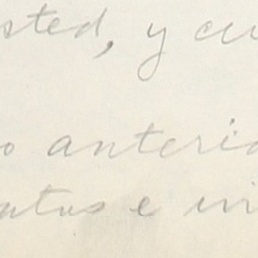 sted, y cu
o anterio
ntus e in